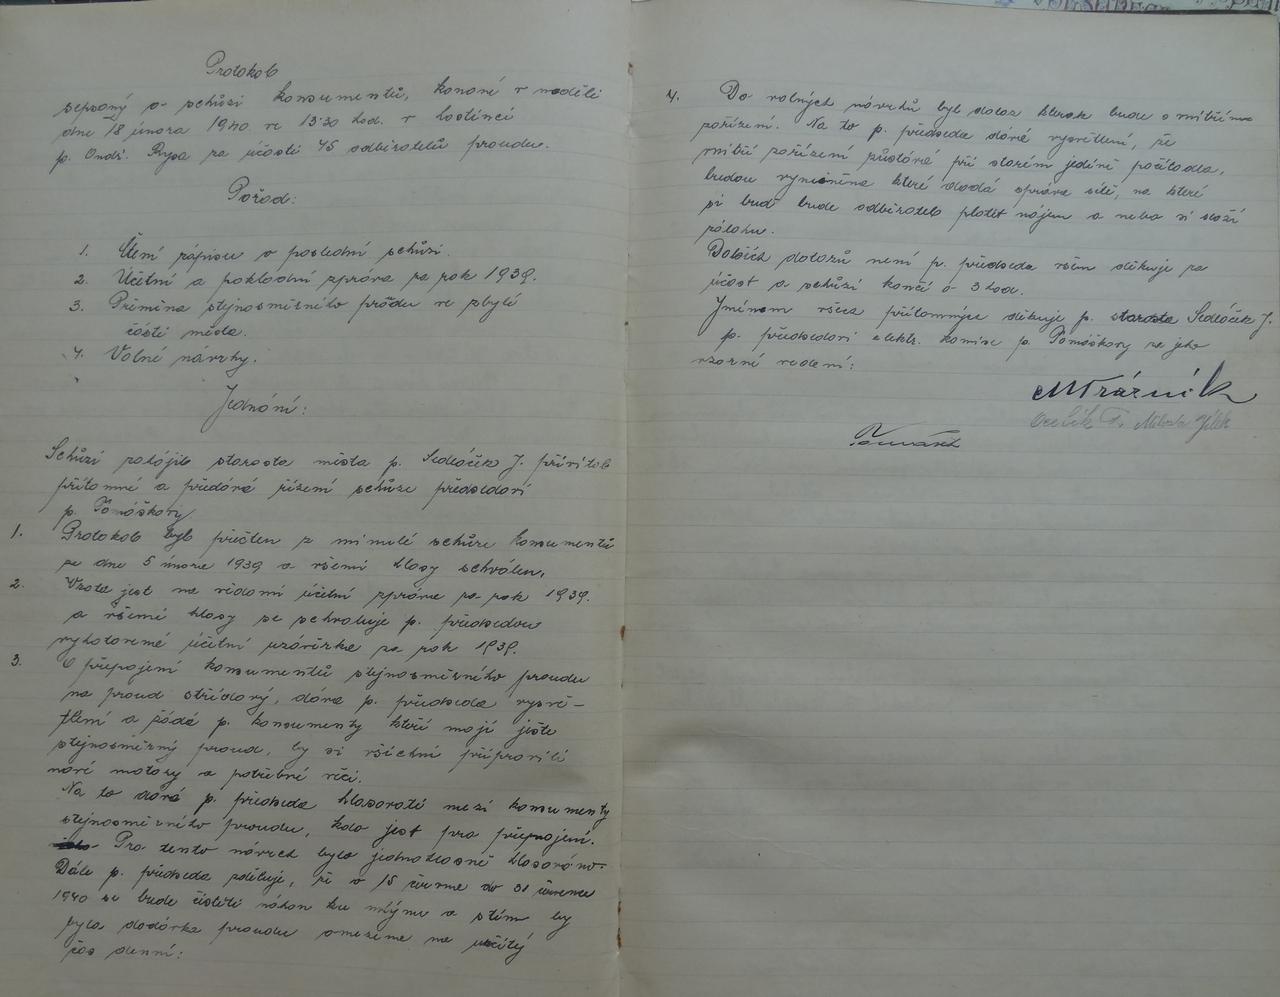 Protokol
sepsaný o schůzi konsumentů, konané v neděli
dne 18 února 1940 ve 13:30 hod. v hostinci
p. Ondř. Rysa za účasti 45 odběratelů proudu.
Pořad:
1. Čtení zápisu o poslední schůzi.
2. Účetní a pokladní zpráva za rok 1939.
3. Přeměna stejnosměrného proudu ve zbylé
části města.
4. Volné návrhy.
Jednání:
Schůzi zahájil starosta města p. Sedláček J. přivítal
přítomné a předává řízení schůze předsedovi
p. Tomáškovy
1. Protokol byl přečten z minulé schůze konsumentů
ze dne 5 února 1939 a všemi hlasy schválen.
2. Vzata jest na vědomí účetní zpráva za rok 1939.
a všemi hlasy se schvaluje p. předsedou
vyhotovené účetní uzávěrka za rok 1939.
3. O přepojení konsumentů stejnosměrného proudu
na proud střídavý, dává p. předseda vysvě-
tlení a žádá p. konsumenty kteří mají ješte
stejnosměrný proud, by si všichni připravili
nové motory a potřebné věci.
Na to dává p. předseda hlasovati mezi konsumenty
stejnosměrného proudu, kdo jest pro přepojení.
Pro tento návrh bylo jednohlasně hlasováno.
Dále p. předseda sděluje, že o 15 června do 31 července
1940 se bude čistiti náhon ku mlýnu a stím by
byla dodávka proudu omezena na určitý
čas denní:
4. Do volných návrhů byl dotaz kterak bude s vnitřním
zařízení. Na to p. předseda dává vysvětlení, že
vnitří zařízení zůstává při starém jedině počítadla,
budou vyměněna které dodá správa sítě, na které
si buď bude odběratel platit nájem a nebo si složí
zálohu.
Dalších dotazů není p. předseda všem děkuje za
účast a schůzi končí o 3 hod.
Jménem všech přítomných děkuje p. starosta Sedláček J.
p. předsedovi elektr. komise p. Tomáškovy za jeho
vzorné vedení:
Mrázník
Tomášek